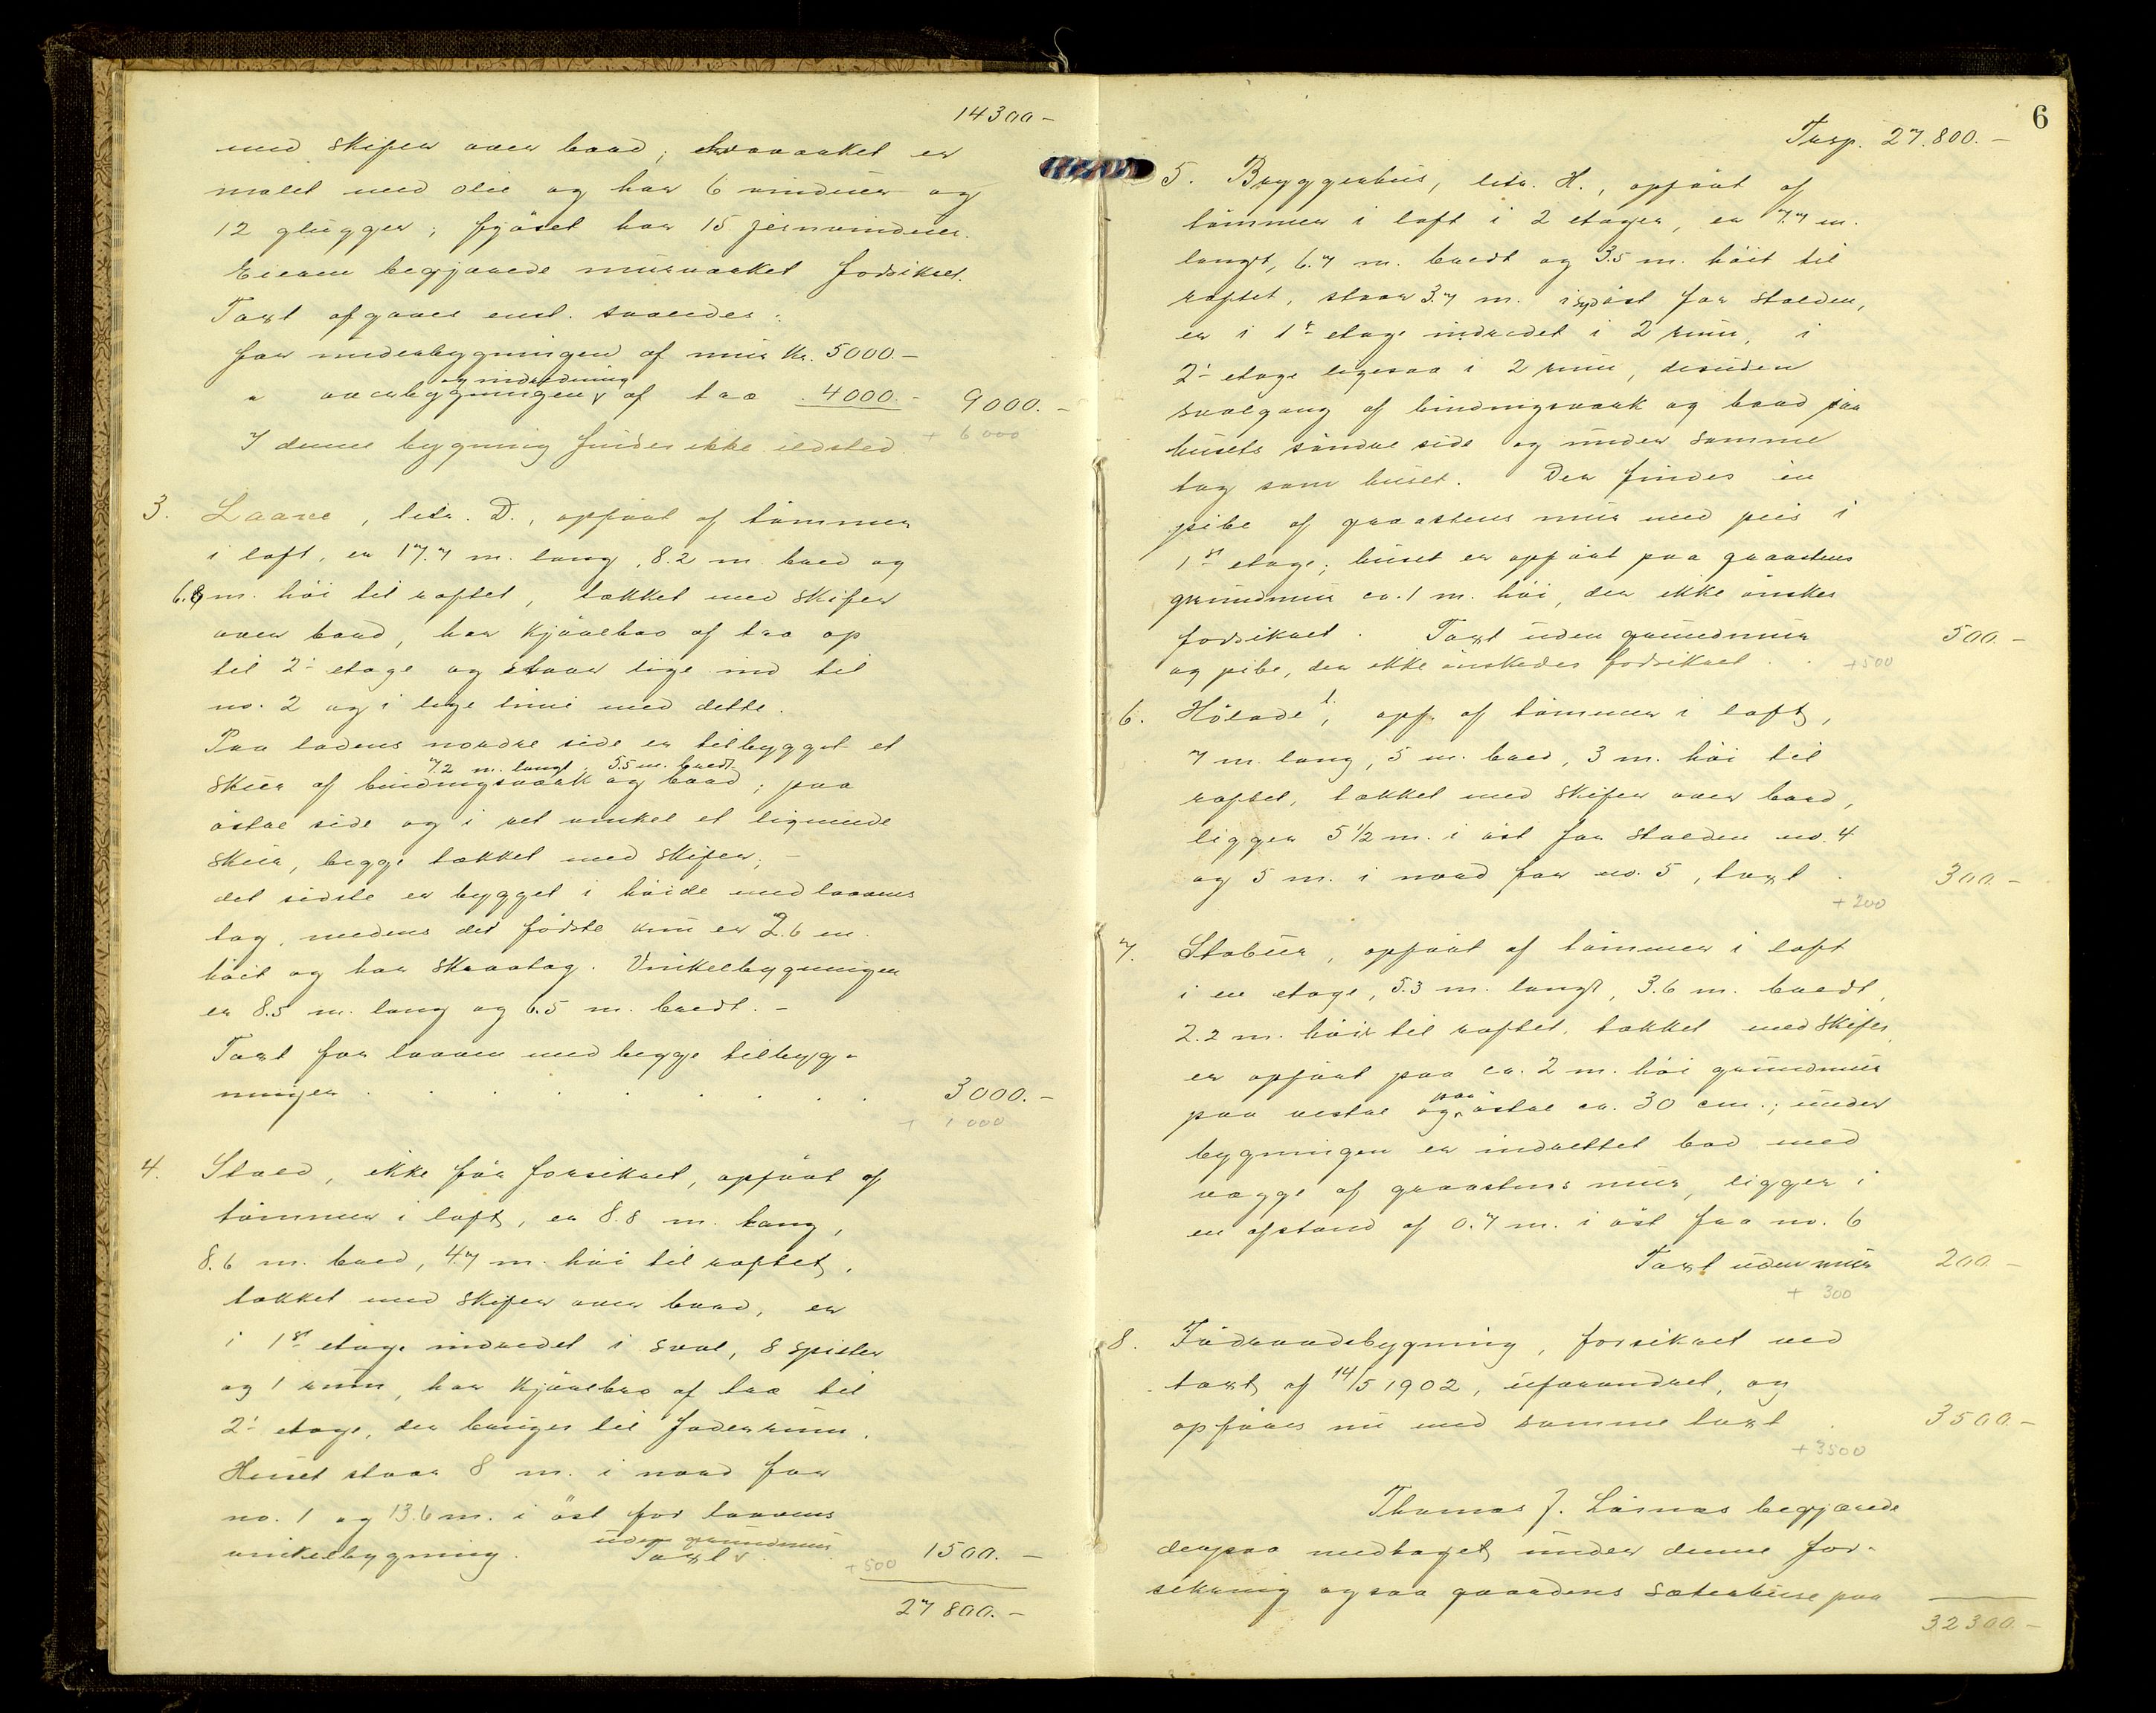 14300 –
med skifer over bord; træværket er
malet med olie og har 6 vinduer og
12 glugger; fjöset har 15 jernvinduer.
Eieren begjærede murværket forsikret.
Taxt afgaves enst. saaledes:
for underbygningen af mur Kr. 5000.–
" overbygningen og indredning af træ 4000.– 9000.–
I denne bygning findes ikke ildsted. + 6000
3. Laave, litr. D., opfört af tömmer
i laft, er 17.7 m. lang, 8.2 m. bred og
6.8 m. höi til raftet, tækket med skifer
over bord, har kjörebro af træ op
til 2. etage og staar lige ind til
no. 2 og i lige linie med dette.
Paa ladens nordre side er tilbygget et
skur af bindingsværk 7.2 m. langt, 5.5 m. bredt og bord; paa
östre side og i ret vinkel et lignende
skur, begge tækket med skifer; –
det sidste er bygget i höide med laavens
tag, medens det förste kun er 2.6 m.
höit og har skraatag. Vinkelbygningen
er 8.5 m. lang og 6.5 m. bredt. –
Taxt for laaven med begge tilbyg-
ninger . . . . . . . . 3000.–
+ 1000
4. Stald, ikke för forsikret, opfört af
tömmer i laft, er 8.8 m. lang,
8.6 m. bred, 4.7 m. höi til raftet,
tækket med skifer over bord, er
i 1ste etage indredet i sval, 8 spister
og 1 rum, har kjörebro af træ til
2. etage, der bruges til foderrum.
Huset staar 8 m. i nord for
no. 1 og 13.6 m. i öst for laavens
vinkelbygning. Taxt uden grundmur 1500.–
+500
27800.–
6
Trsp. 27.800.–
5. Bryggerhus, litr. H., opfört af
tömmer i laft i 2 etager, er 7.7 m.
langt, 6.7 m. bredt og 3.5 m. höit til
raftet, staar 3.7 m. i sydöst for stalden,
er i 1ste etage indredet i 2 rum, i
2. etage ligesaa i 2 rum, desuden
svalgang af bindingsværk og bord paa
husets söndre side og under samme
tag som huset. Der findes en
pibe af graastens mur med peis i
1ste etage; huset er opfört paa graastens
grundmur ca. 1 m. höi, der ikke önskes
forsikret. Taxt uden grundmur 500.–
og pibe, der ikke önskedes forsikret. . +500
6. Hölade, opf. af tömmer i laft,
7 m. lang, 5 m. bred, 3 m. höi til
raftet, tækket med skifer over bord,
ligger 5 1/2 m. i öst for stalden no. 4
og 5 m. i nord for no. 5, taxt . 300.–
+200
7. Stabur, opfört af tömmer i laft
i en etage, 5.3 m. langt, 3.6 m. bredt,
2.2 m. höit til raftet, tækket med skifer,
er opfört paa ca. 2 m. höi grundmur
paa vestre og paa östre ca. 30 cm.; under
bygningen er indrettet bod med
vægge af graastens mur, ligger i
en afstand af 0.7 m. i öst fra no. 6
Taxt uden mur 200.–
+ 300
8. Födraadsbygning, forsikret ved
taxt af 14/5 1902, uforandret, og
opföres nu med samme taxt . 3500.–
+3500
Thomas J. begjærede
derpaa medtaget under denne for-
sikring ogsaa gaardens sæterhuse paa
32300.–